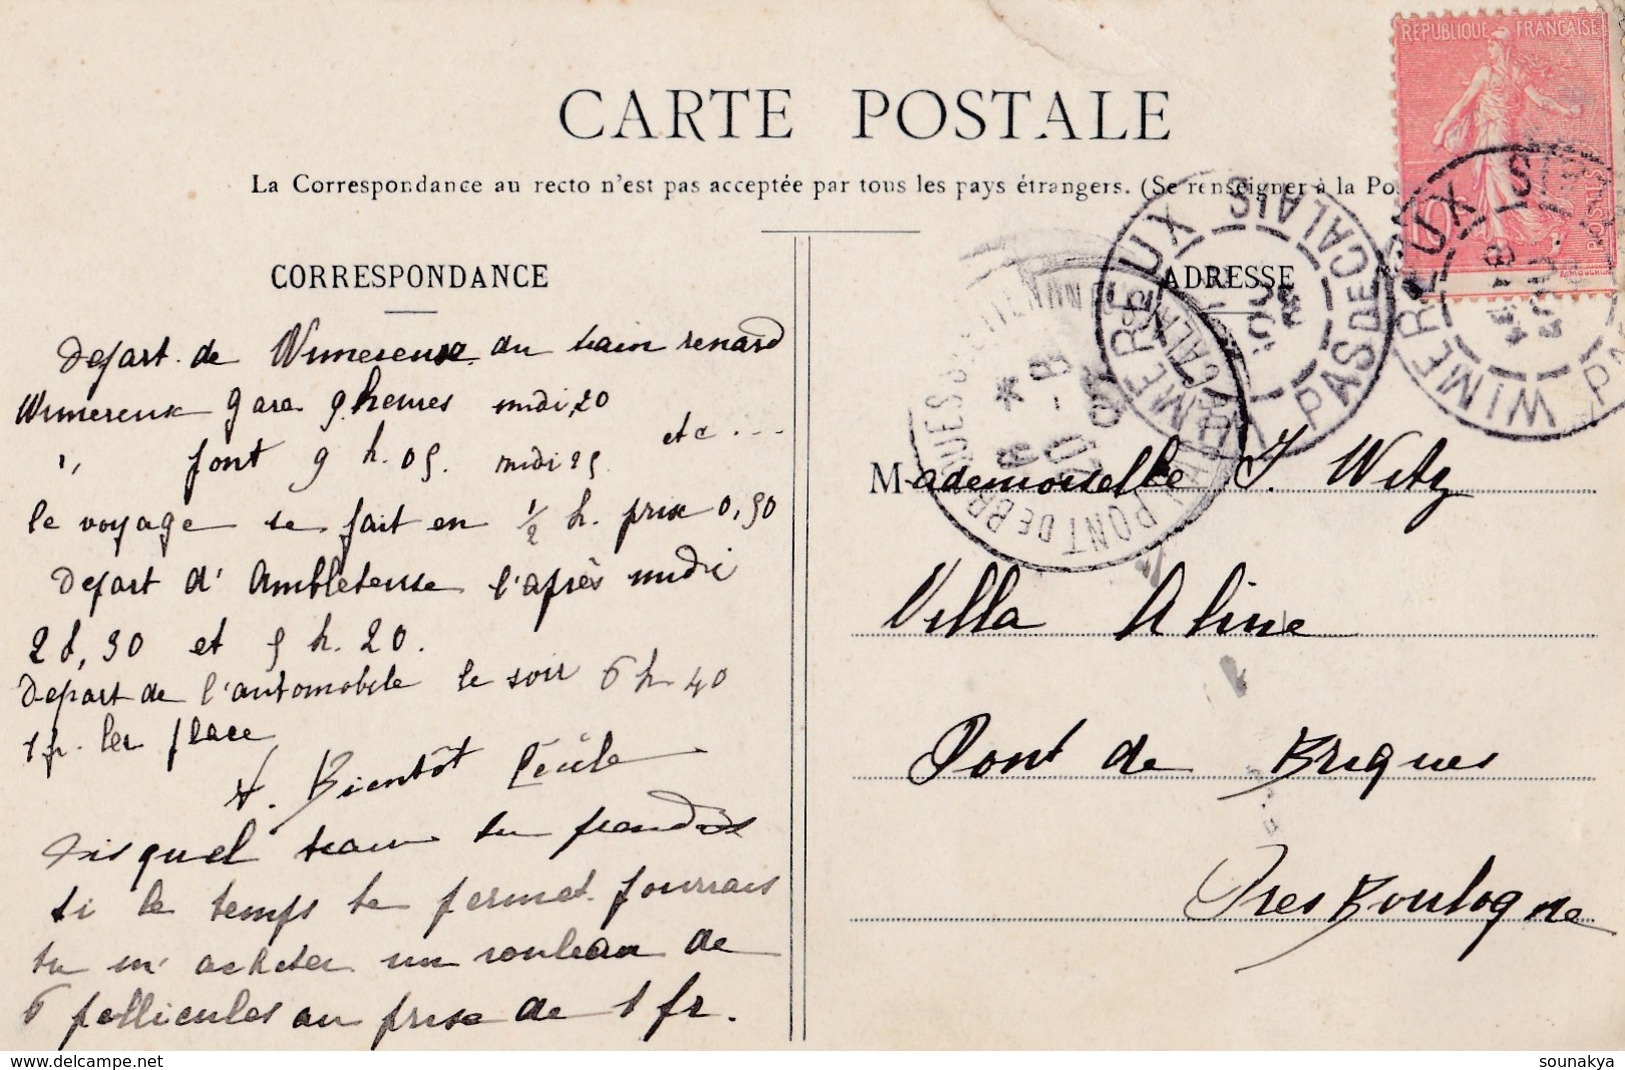 CARTE POSTALE
La Correspondance au recto n'est pas acceptée par tous les pays étrangers. (Se renseigner à la Po
CORRESPONDANCE
Depart de Wimereux du train renard
Wimereux gare 9 heures midi 20
" font 9 h. 05. midi 25 etc ...
le voyage se fait en 1/2 h. prix 0,50
Depart d'Ambleteuse l'après midi
2 h, 30 et 5 h. 20.
Depart de l'automobile le soir 6 h 40
1 fr. les place
A. Bientôt Cécile
Dis quel train tu prendras
si le temps te permet. pourrais
tu m'acheter un rouleau de
6 pellicules au prise de 1 fr.
REPUBLIQUE FRANÇAISE
10
POSTES
ADRESSE
WIMEREUX
PAS DE CALAIS
WIMEREUX
PONT DE BRIQUES
Mademoiselle J. Witz
Villa Aline
Pont de Briques
Pres Boulogne
www.delcampe.net
sounakya